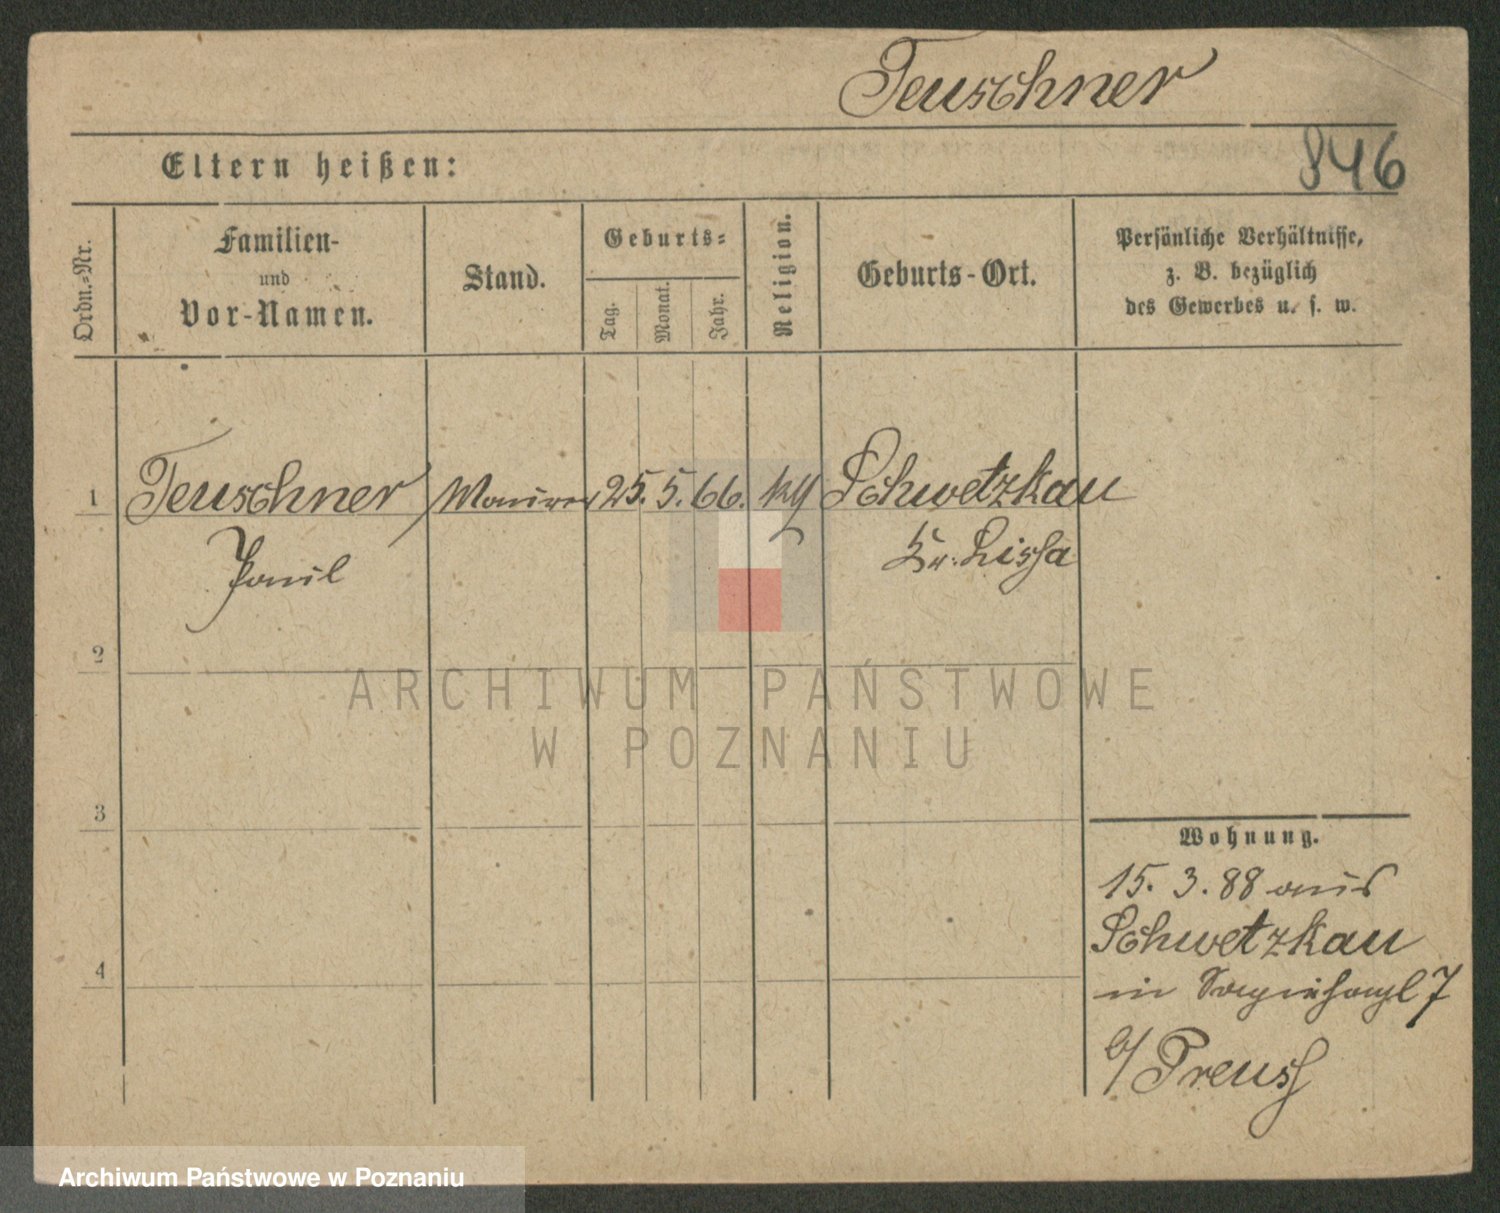 Teuschner
846
Eltern heißen:
Ordn.-Nr.
Familien-
und
Vor-Namen.
Stand.
Geburts-
Tag.
Monat.
Jahr.
Religion.
Geburts-Ort.
Persönliche Verhältnisse,
z. B. bezüglich
des Gewerbes u. s. w.
1 Teuschner Maurer 25. 5. 66. kg Schwetzkau
Paul Kr. Lissa
2
3
4
Wohnung.
15. 3. 88 aus
Schwetzkau
in 7
b/ Preuss
ARCHIWUM PAŃSTWOWE
W POZNANIU
Archiwum Państwowe w Poznaniu